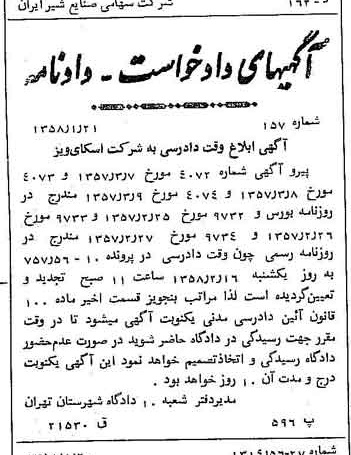 شرکت سهامی صنایع شیر ایران
آگهیهای دادخواست - دادنامه
شماره ۱۵۷
۱۳۵۸/۱/۲۱
آگهی ابلاغ وقت دادرسی به شرکت اسکای‌ویز
پیرو آگهی شماره ۴۰۷۲ مورخ ۱۳۵۷/۳/۷ و ۴۰۷۳
مورخ ۱۳۵۷/۳/۸ و ۴۰۷۴ مورخ ۱۳۵۷/۳/۹ مندرج در
روزنامه بورس و ۹۷۳۲ مورخ ۱۳۵۷/۲/۲۵ و ۹۷۳۳ مورخ
۱۳۵۷/۲/۲۶ و ۹۷۳۴ مورخ ۱۳۵۷/۲/۲۷ مندرج در
روزنامه رسمی چون وقت دادرسی در پرونده ۱۰-۷۵۷/۵۶
به روز یکشنبه ۱۳۵۸/۲/۱۶ ساعت ۱۱ صبح تجدید و
تعیین‌گردیده است لذا مراتب بتجویز قسمت اخیر ماده ۱۰۰
قانون آئین دادرسی مدنی یکنوبت آگهی میشود تا در وقت
مقرر جهت رسیدگی در دادگاه حاضر شوید در صورت عدم‌حضور
دادگاه رسیدگی و اتخاذتصمیم خواهد نمود این آگهی یکنوبت
درج و مدت آن ۱۰ روز خواهد بود .
مدیردفتر شعبه ۱۰ دادگاه شهرستان تهران
پ ۵۹۶
ق ۲۱۵۳۰